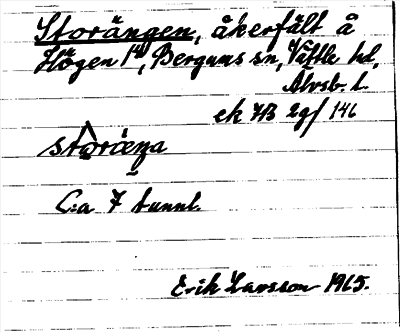 Storängen, åkerfält å
Högen 1⁴, Bergums sn, Vättle hd,
Älvsb. l.
ek 7B 2g/ 146
C:a 7 tunnl.
Erik Larsson 1965.